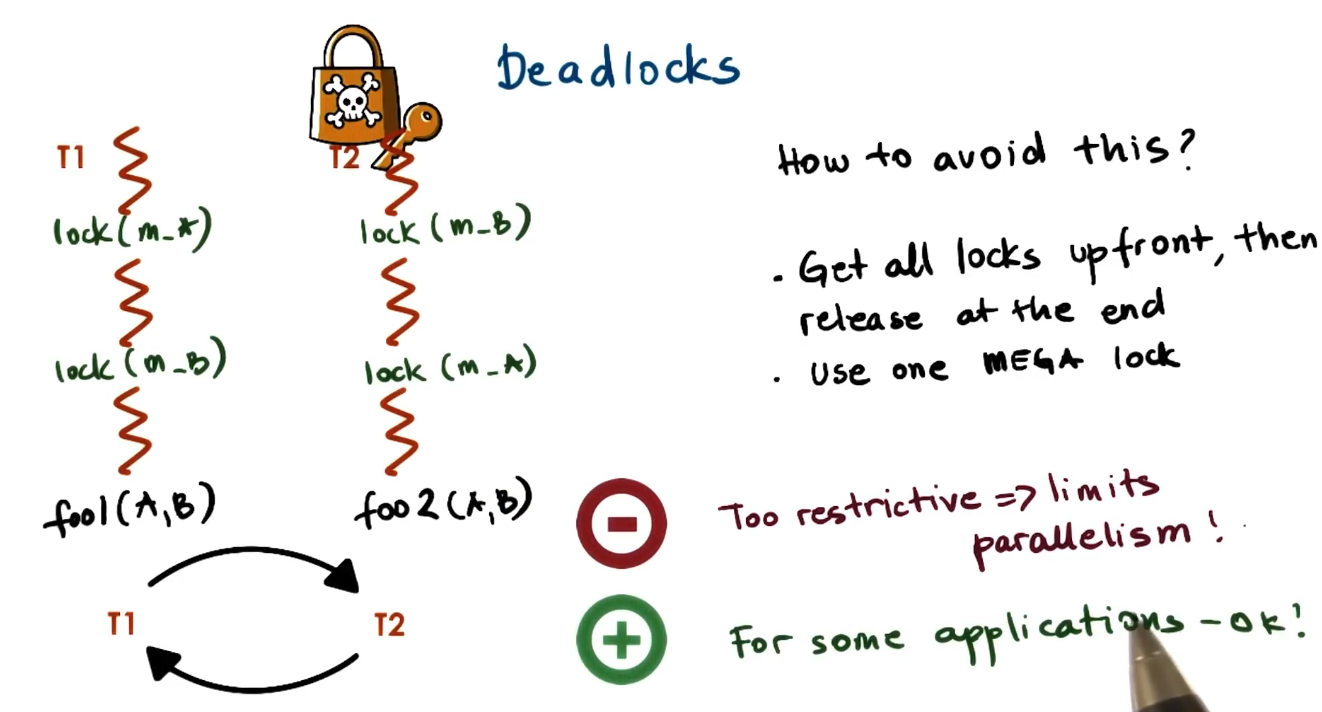 Deadlocks
T1
T2
lock(m_A)
lock(m_B)
lock(m_B)
lock(m_A)
foo1(A,B)
foo2(A,B)
T1
T2
How to avoid this?
. Get all locks upfront, then
release at the end
. Use one MEGA lock
Too restrictive => limits
parallelism!
For some applications - ok!